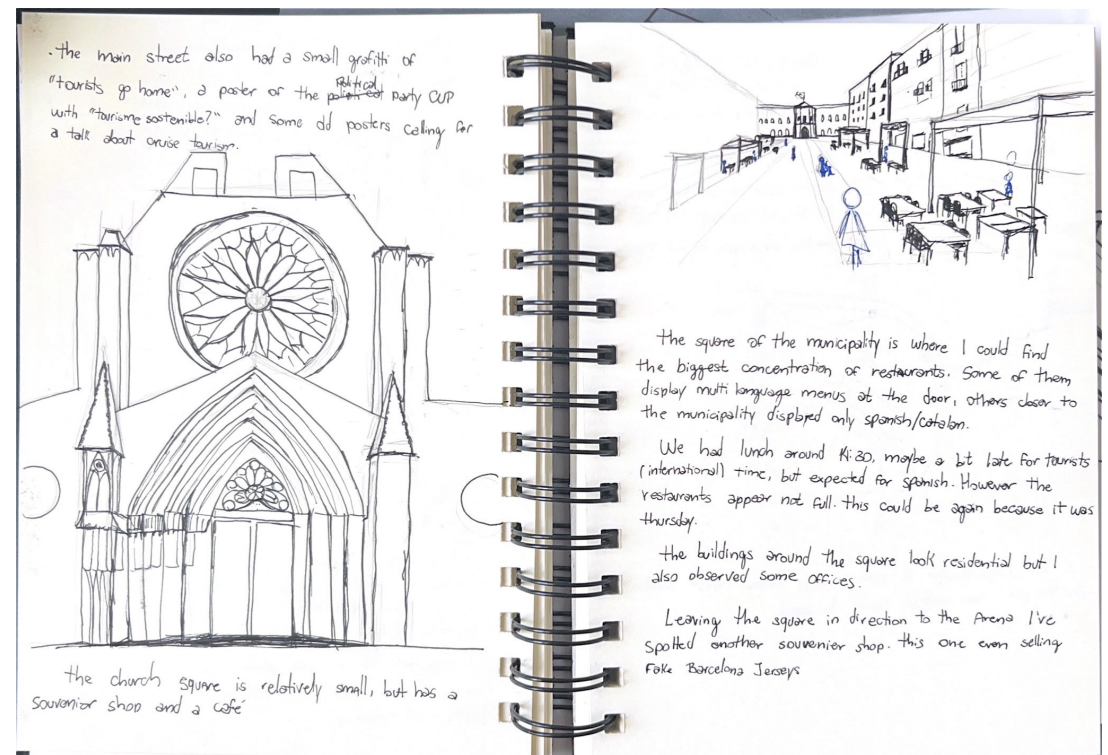 . the main street also had a small grafitti of
"tourists go home", a poster of the political party CUP
with "tourisme sostenible?" and some old posters calling for
a talk about cruise tourism.
the church square is relatively small, but has a
souvenior shop and a café
the square of the municipality is where I could find
the biggest concentration of restaurants. Some of them
display multi language menus at the door, others closer to
the municipality displayed only spanish/catalan.
We had lunch around 14:30, maybe a bit late for tourists
(international) time, but expected for spanish. However the
restaurants appear not full. this could be again because it was
thursday.
the buildings around the square look residential but I
also observed some offices.
Leaving the square in direction to the Arena I've
spotted another souvenier shop. this one even selling
Fake Barcelona Jerseys